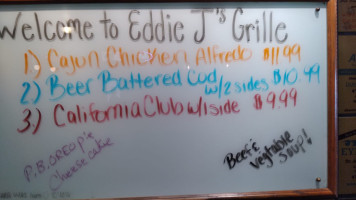 Welcome to Eddie J's Grille
1) Cajun Chicken Alfredo $11.99
2) Beer Battered Cod w/2 sides $10.99
3) California Club w/1 side $9.99
P.B. OREO pie
Cheesecake
Beef & vegtable soup!